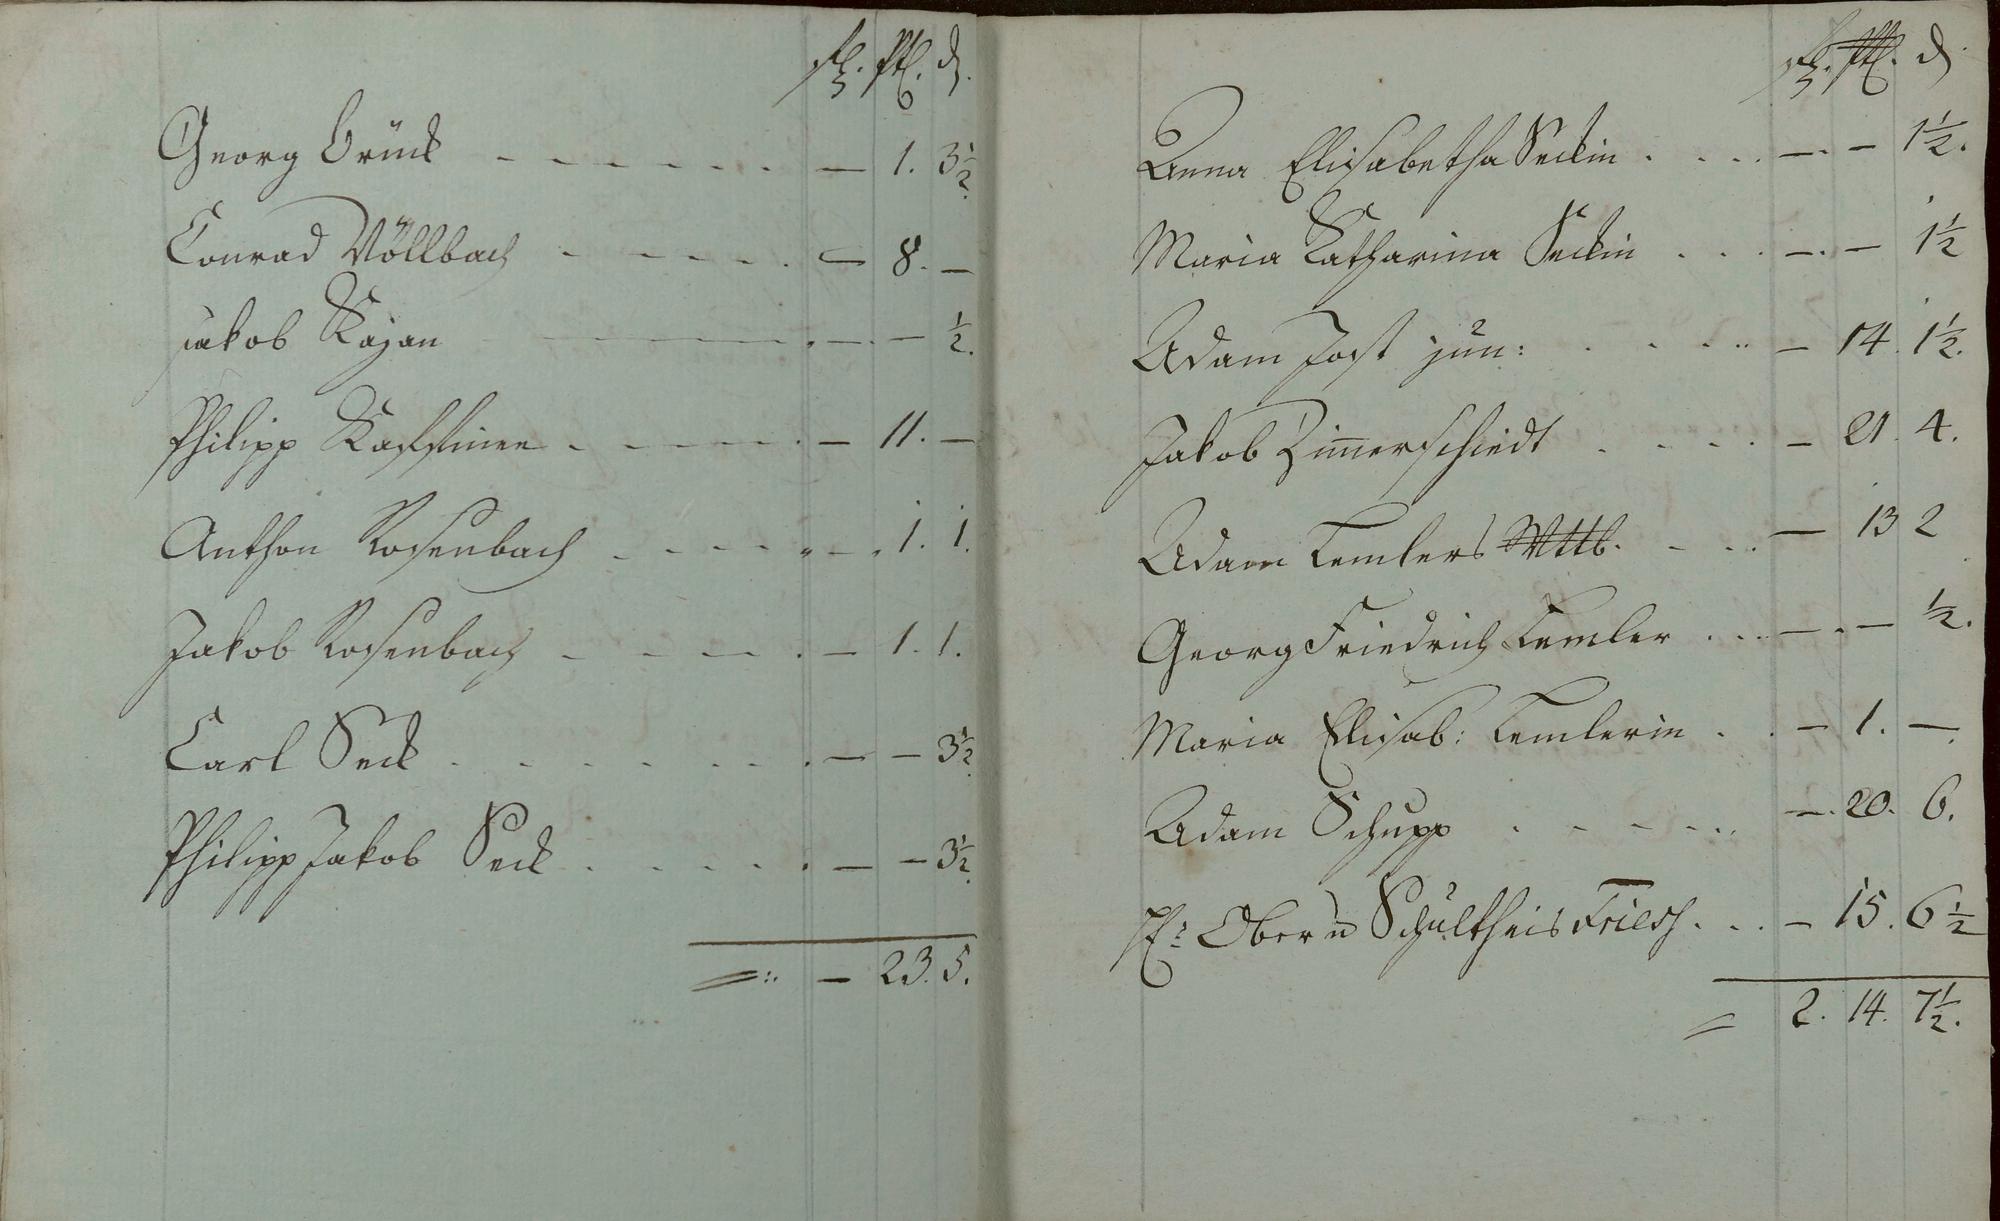 Georg Brück - - - - - - . — 1. 3½.
Conrad Völlbach - - - - - . — 8. —
Jakob Kajan - - - - - . — . — ½.
Philipp - - - - - . — 11. —
Anthon Rosenbach - - - - - . — . 1. 1.
Jakob Rosenbach - - - - - . — 1. 1.
Carl Seck . . . . . . . — — 3½.
Philipp Jakob Seck . . . . . — — 3½.
— 23. 5.
Anna Elisabetha Seckin . . . . — . — 1½.
Maria Katharina Seckin . . . — . — 1½
Adam Jost jun: . . . . — 14. 1½.
Jakob Zimerschiedt . . . . — 21. 4.
Adam Lemlers Wttb. - . . — 13 2
Georg Friedrich Lemler . . . — . — ½.
Maria Elisab: Lemlerin . . — 1. —.
Adam Schupp . . . . . —. 20. 6.
H: Ober u Schultheis Friesh. . . — 15. 6½
= 2. 14. 7½.